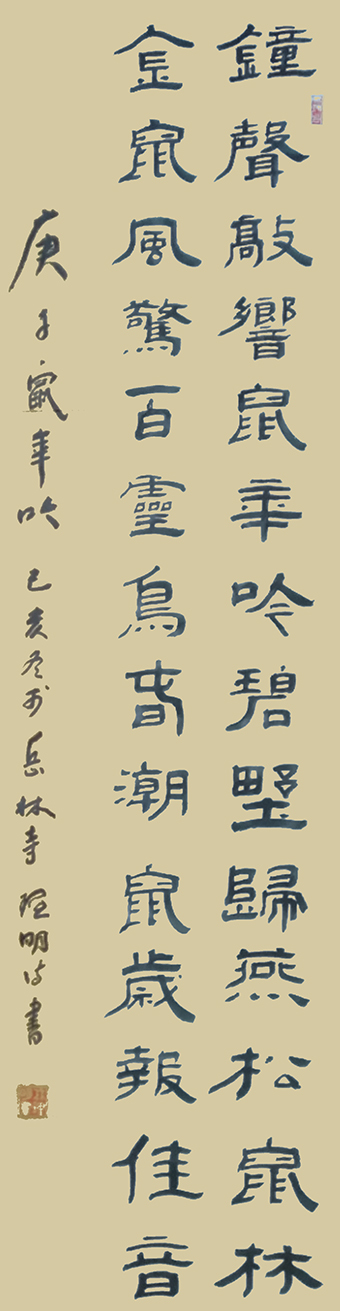 鐘聲敲響鼠年吟碧野歸燕松鼠林
金鼠風驚百靈鳥春潮鼠歲報佳音
庚子鼠年吟 己亥冬於岳林寺 明詩書